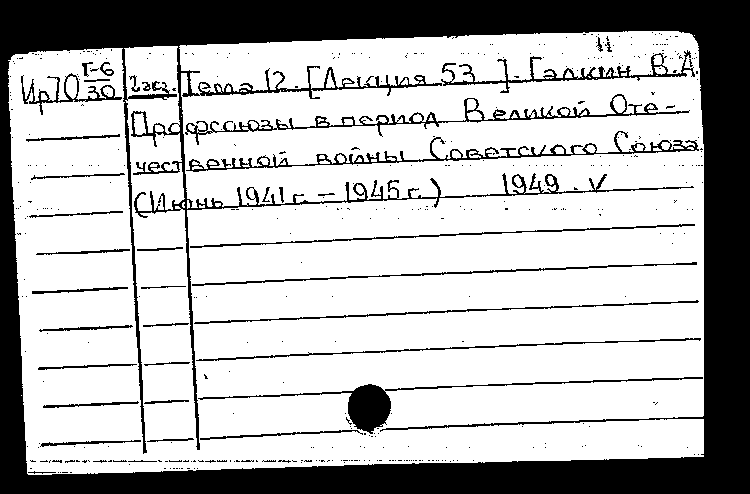 11
Ир70 Г-6/30 1 экз. Тема 12. [Лекция 53 ]. Галкин, В.А.
Профсоюзы в период Великой Оте-
чественной войны Советского Союза
(Июнь 1941 г. – 1945 г.) 1949. V